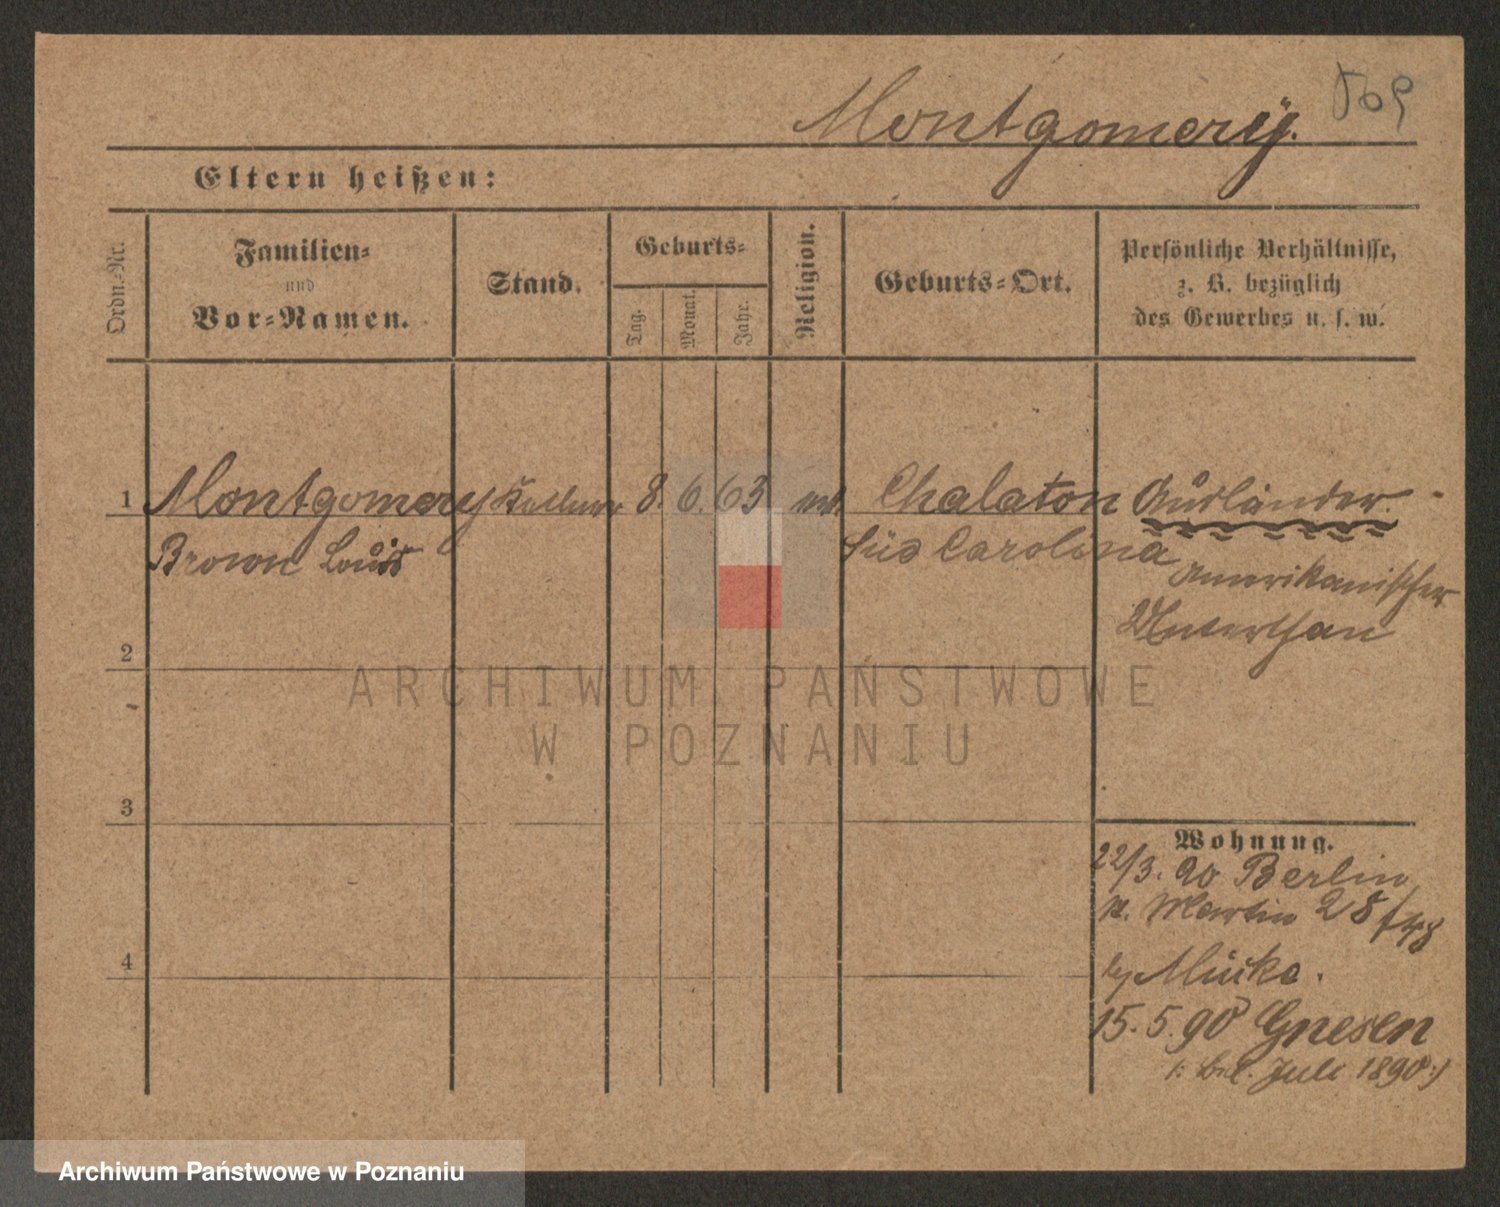 Montgomery. 569
Eltern heißen:
Ordn.-Nr.
Familien-
und
Vor-Namen.
Stand.
Geburts-
Tag.
Monat.
Jahr.
Religion.
Geburts-Ort.
Persönliche Verhältnisse,
z. B. bezüglich
des Gewerbes u. s. w.
1 Montgomery Kellner 8. 6. 63 Chalaton Ausländer.
Brown Louis Süd Carolina
Amerikanischer
Unterthan
2
3
4
Wohnung.
22/3. 90 Berlin
St. Martin 28/48
Mücke.
15. 5. 90 Gnesen
Juli 1890:)
ARCHIWUM PAŃSTWOWE
W POZNANIU
Archiwum Państwowe w Poznaniu